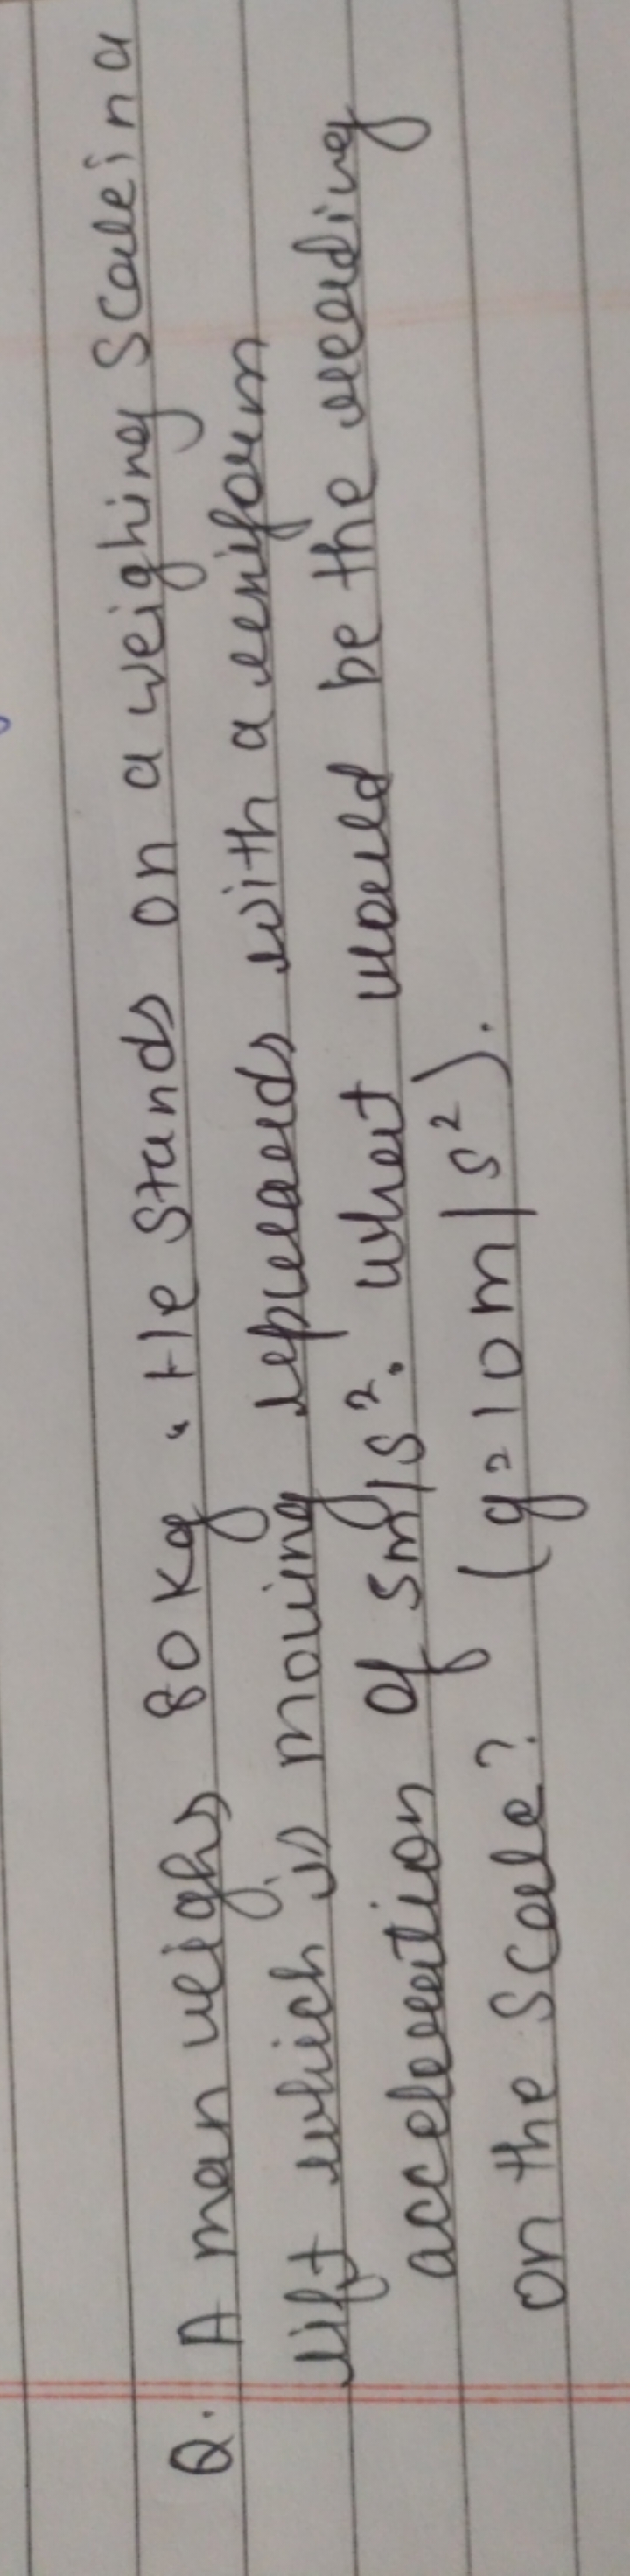 Q. A man weighs 80 Kg. He Stands on a weighing Scale in a
lift which is moving upwards with a uniform
acceleration of 5m/s². what would be the reading
on the Scale? (g=10m/s²).